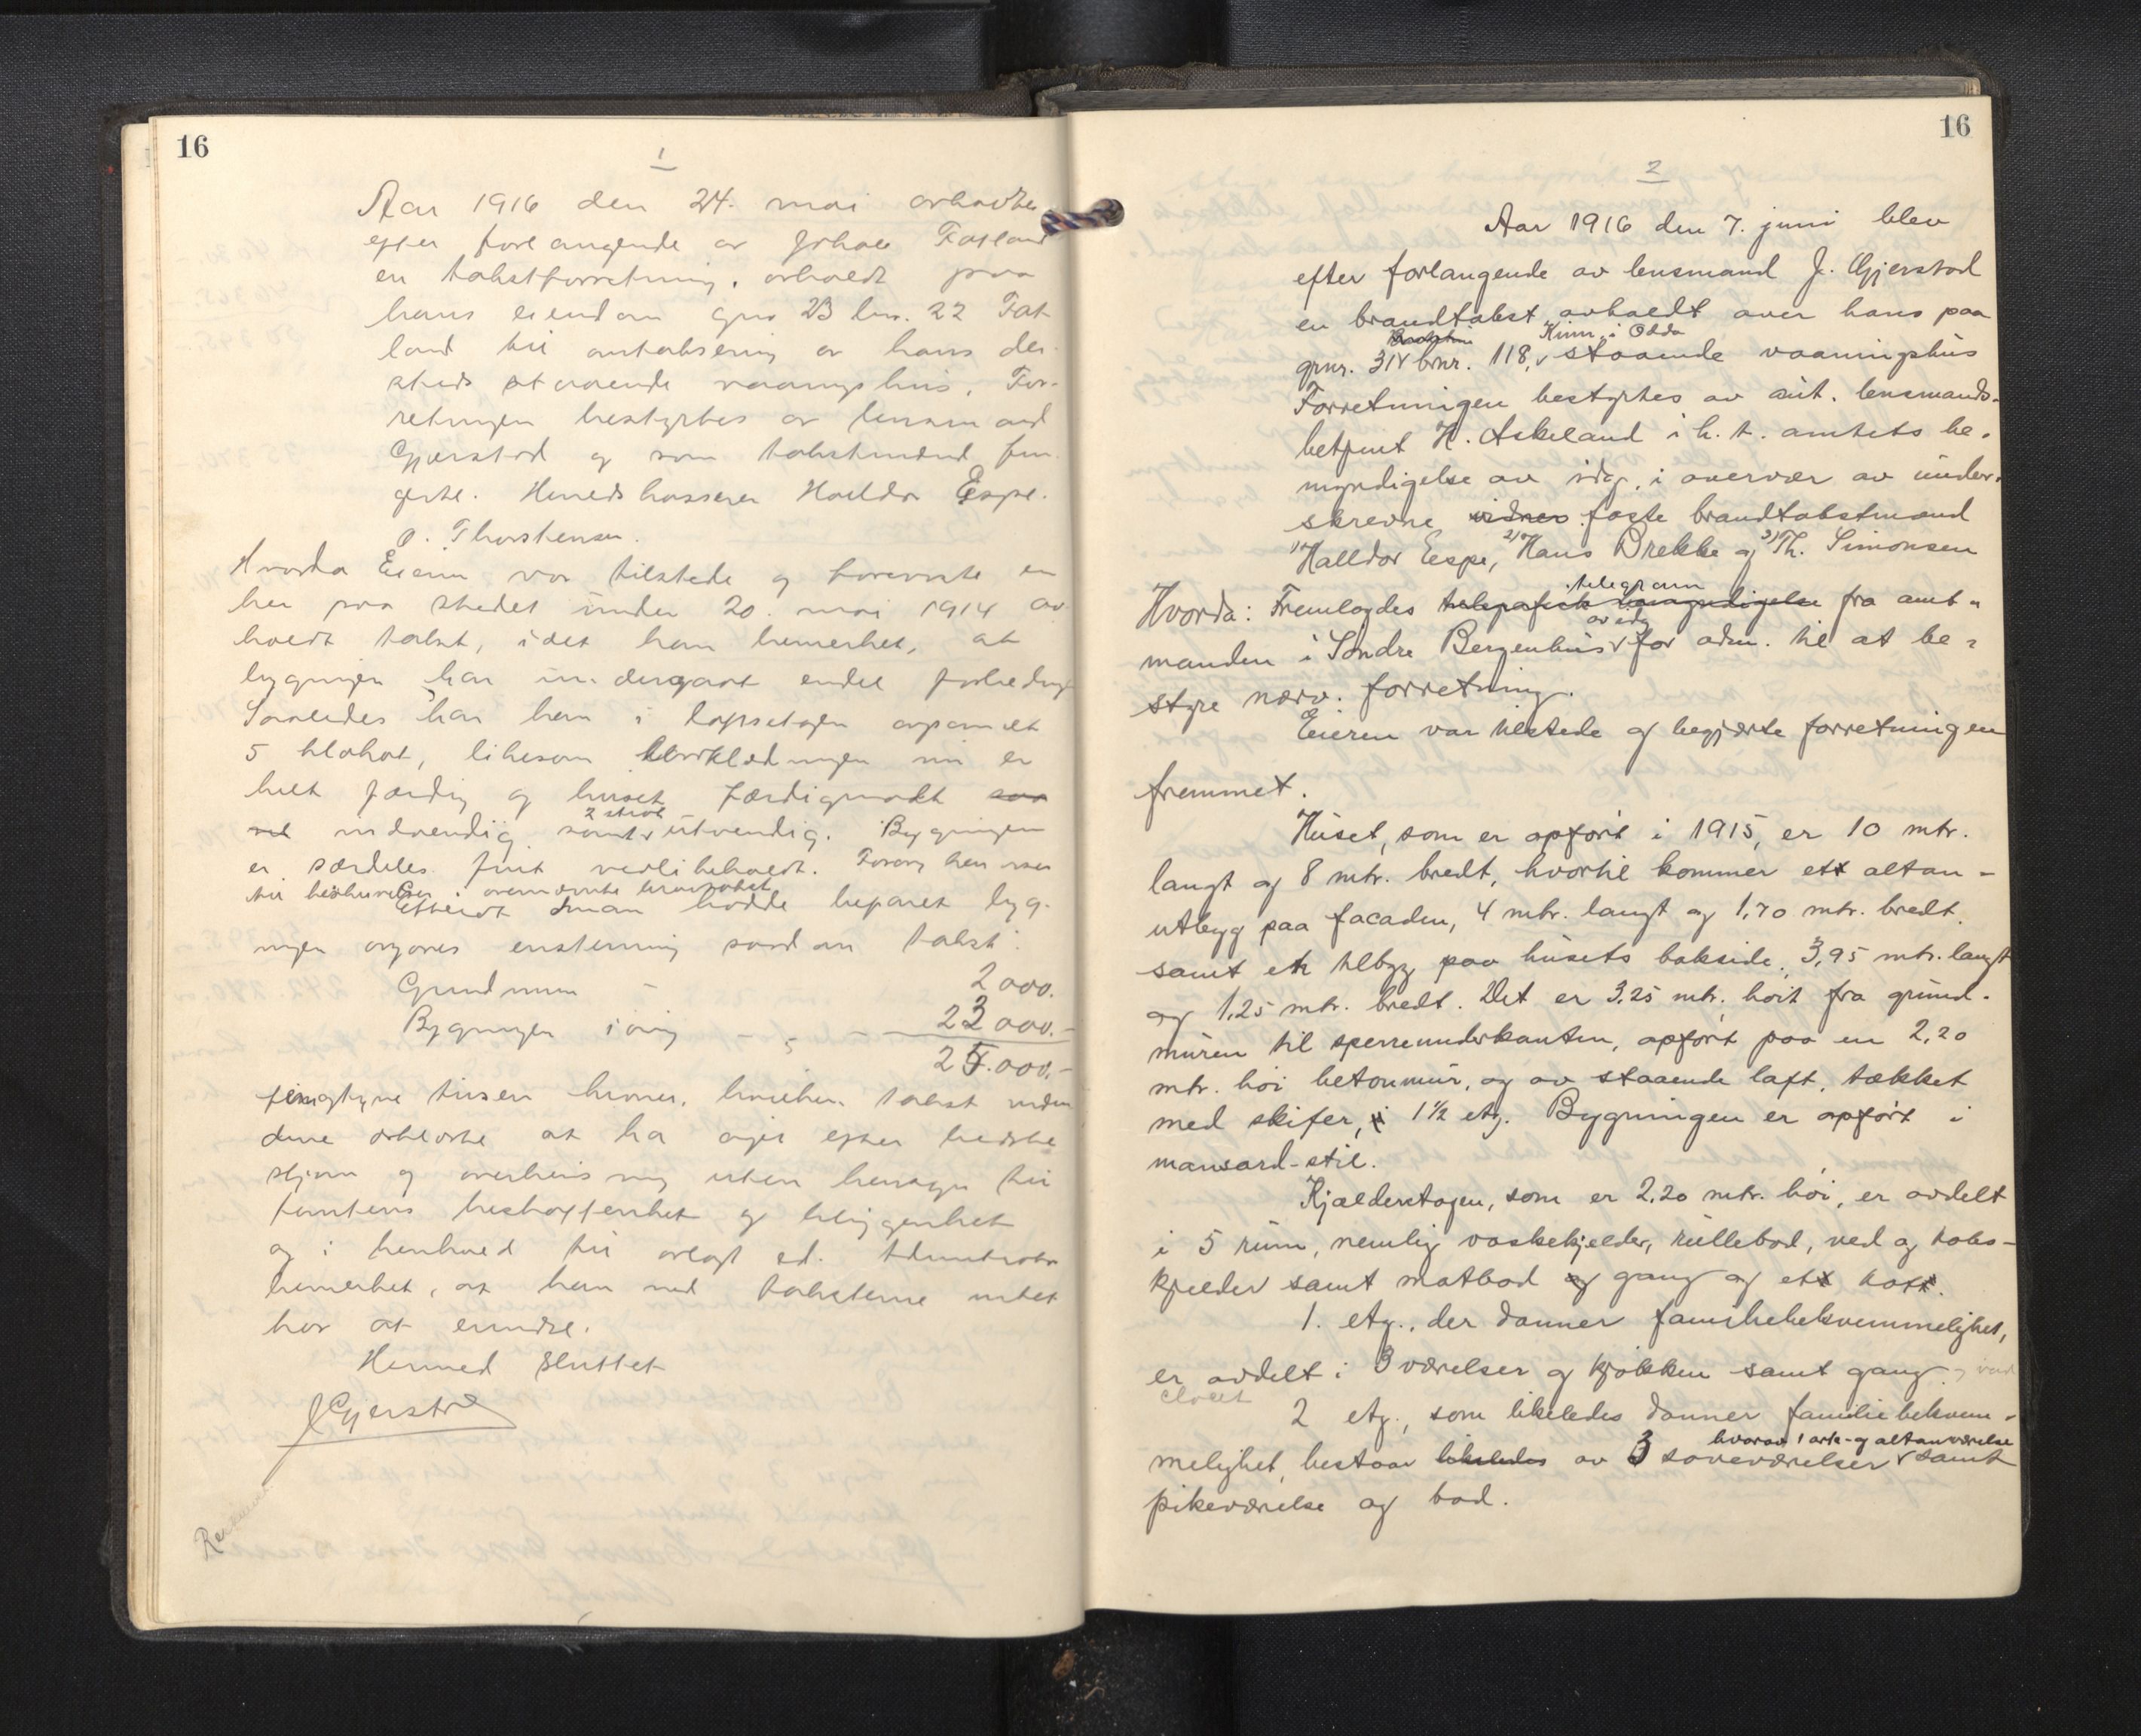 16
1
Aar 1916 den 24. mai avholdtes
efter forlangende av Johan Fatland
en takstforretning avholdt paa
hans eiendom gnr 23 bnr. 22 Fat
land til avtaksering av hans der
steds staaende vaaningshus. For-
retningen bestyrtes av lensmand
Gjerstad og som takstmænd fun
gerte. Herredskasserer Halldor Espe.
O. Thorstensen.
Hvorda Eieren var tilstede og foreviste en
her paa stedet under 20. mai 1914 av
holdt takst, idet han bemerket, at
bygningen har undergaat endel forbedring
Saaledes har han i loftsetagen
5 , likesom bordklædningen nu er
helt færdig og huset færdigmalt saa
vel indvendig samt 2 strøk utvendig. Bygningen
er særdeles fint vedlikeholdt. Forøvrig henvises
til beskrivelsen i ovennævnte branntakst
Efterat man hadde beparet byg-
ningen avgaves enstemmig saadan takst:
Grundmuren - 2000.
Bygningen iøvrig - - - 23000.-
25.000.-
femogtyve tusen kroner, hvilken takst mæn
dene erklærte at ha avgit efter bedste
skjøn og overbevisning uten hensyn til
tomtens beskaffenhet og beliggenhet
og i henhold til avlagt ed.
bemerket, at han ved taksterne intet
har at erindre.
Hermed sluttet
JGjerstad
16
2
Aar 1916 den 7. juni blev
efter forlangende av lensmand J. Gjerstad
en brandtakst avholdt over hans paa
Kinn, i Odda
gnr. 31 bnr. 118, staaende vaaningshus
Forretningen bestyrtes av aut. lensmands-
betjent H. Askeland i h. t. amtets be-
myndigelse av idag, i overvær av under-
skrevne vidner faste brandtakstmænd
1) Halldor Eespe, 2) Hans Drekke og 3) Th. Simonsen
telegram
Hvorda: Fremlagdes telegrafisk bemyndigelse fra amt-
av idg
manden i Søndre Bergenhus for adm. til at be-
styre nærv. forretning.
Eieren var tilstede og begjærte forretningen
fremmet.
Huset, som er opført i 1915, er 10 mtr.
langt og 8 mtr. bredt, hvortil kommer ett altan-
utbyg paa facaden, 4 mtr. langt og 1,70 mtr. bredt
samt et tilbyg paa husets bakside, 3,95 mtr. langt
og 1,25 mtr. bredt. Det er 3,25 mtr. høit fra grund-
muren til sperreunderkanten, opført paa en 2,20
mtr. høi betonmur, og av staaende laft, tækket
med skifer, i 1½ etg. Bygningen er opført i
mansard-stil.
Kjælderetagen, som er 2,20 mtr. høi, er avdelt
i 5 rum, nemlig vaskekjelder, rullebod, ved og koks-
kjelder samt matbod og gang og ett kott.
1. etg., der danner familiebekvemmelighet,
er avdelt i 3 værelser og kjøkken samt gang
closet
2 etg., som likeledes danner familiebekvem-
hvorav 1 ark- og altanværelse
melighet, bestaar likeledes av 3 soveværelser samt
pikeværelse og bad.